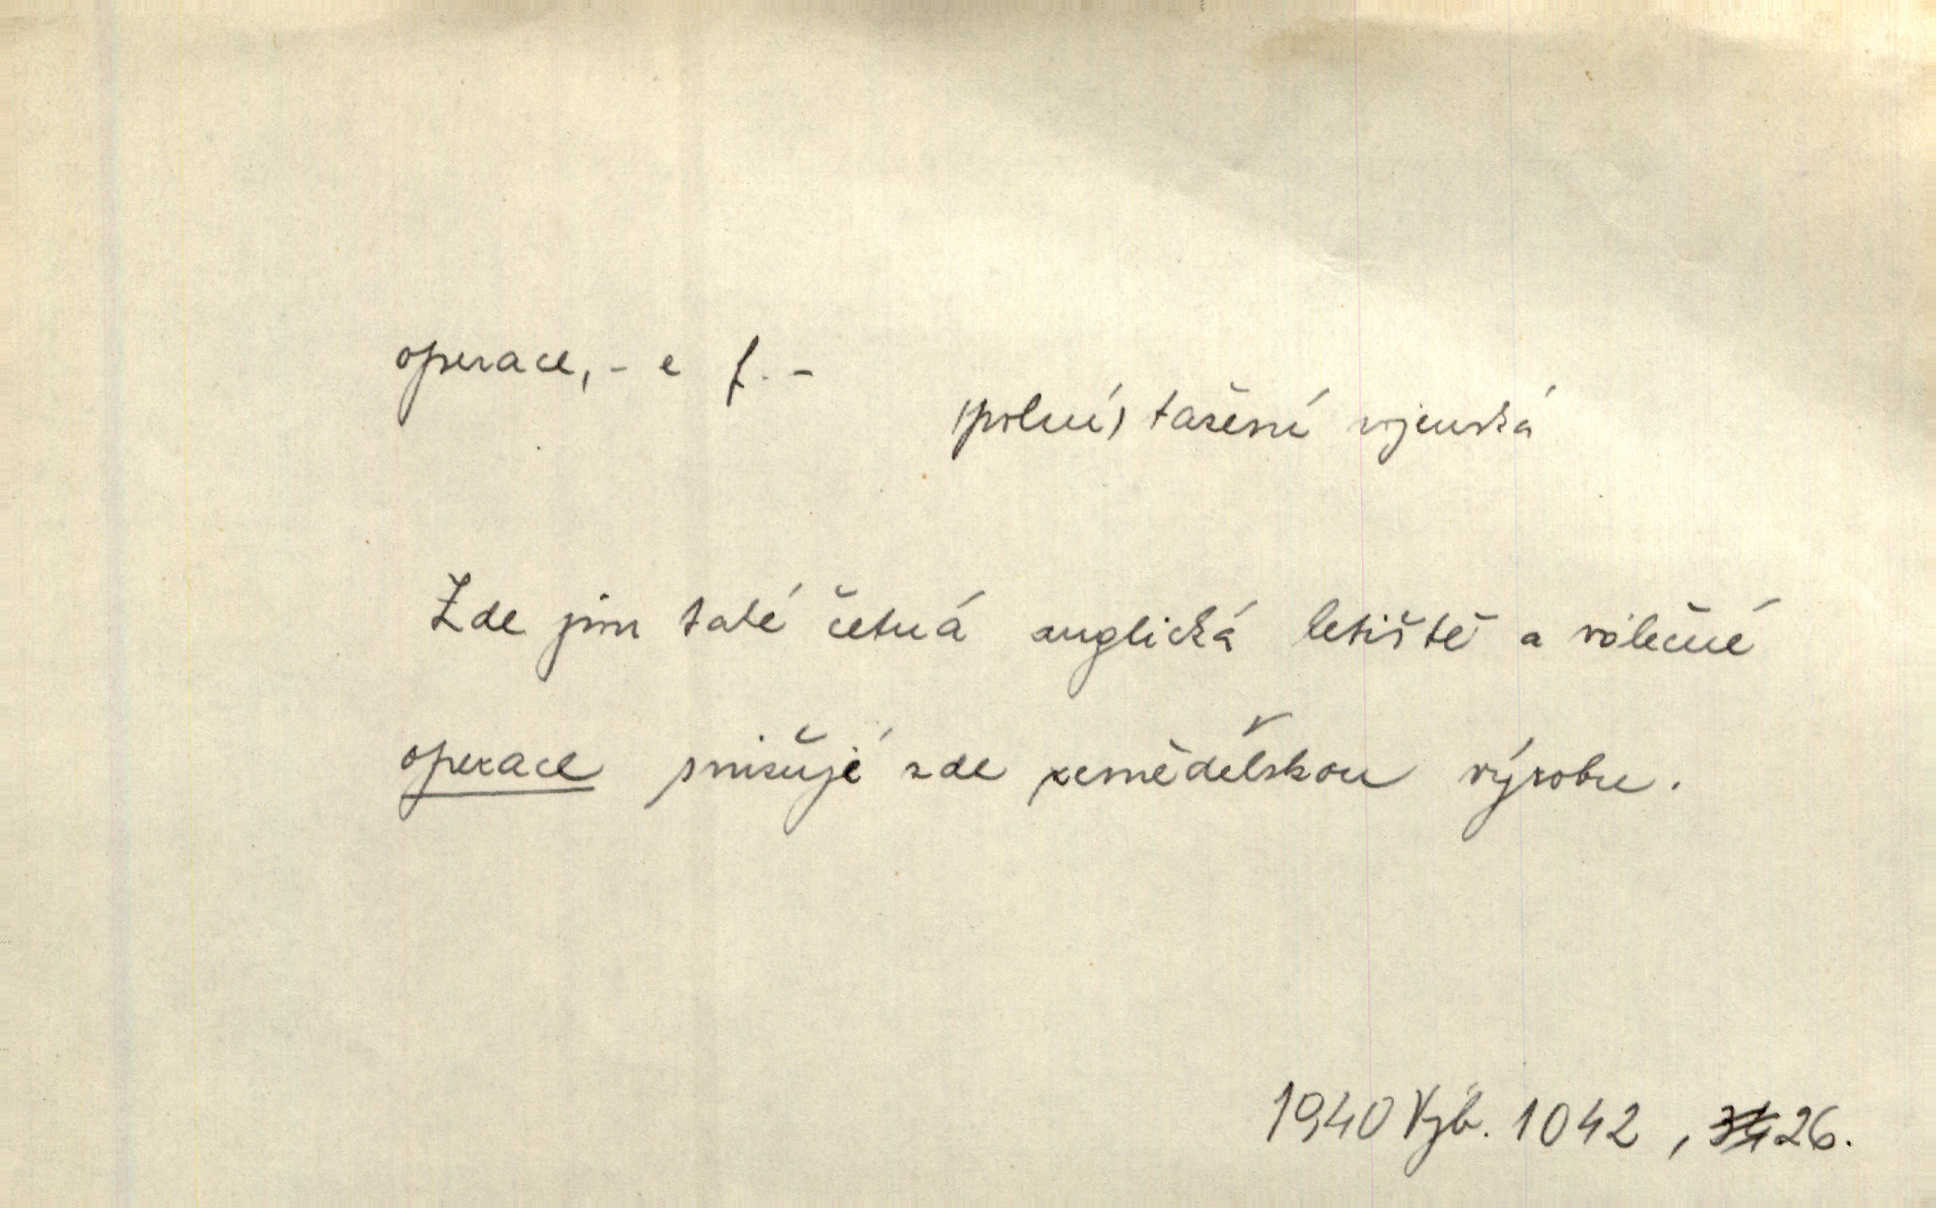 operace, - e f. -
(polní) tažení vojenská
Zde jsou také četná anglická letiště a válečné
operace snižují zde zemědělskou výrobu.
1940 Výb. 1042, 26.